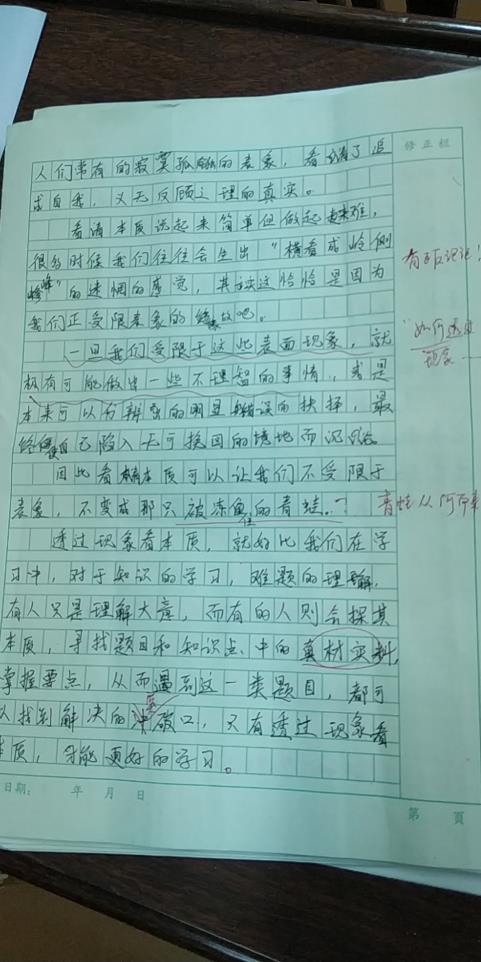 修正栏
人们常有的寂寞孤独的表象，看清了追
求自我，义无反顾之理的真实。
看清本质说起来简单但做起来难，
很多时候我们往往会生出“横看成岭侧
峰”的迷惘的感觉，其实这恰恰是因为
我们正受限表象的缘故吧。
一旦我们受限于这些表面现象，就
极有可能做出一些不理智的事情，或是
本来可以分辨出的明显错误的抉择，最
终使自己陷入无可挽回的境地而沉沦。
因此看清本质可以让我们不受限于
表象，不变成那只被冻鱼的青蛙。
住
透过现象看本质，就好比我们在学
习中，对于知识的学习，难题的理解，
有人只是理解大意，而有的人则会探其
本质，寻找题目和知识点中的真材实料，
掌握要点，从而遇到这一类题目，都可
以找到解决的破口，只有透过现象看
突
本质，才能更好的学习。
有正反记论！
“如何透过
现象
青蛙从何而来
日期： 年 月 日
第 頁